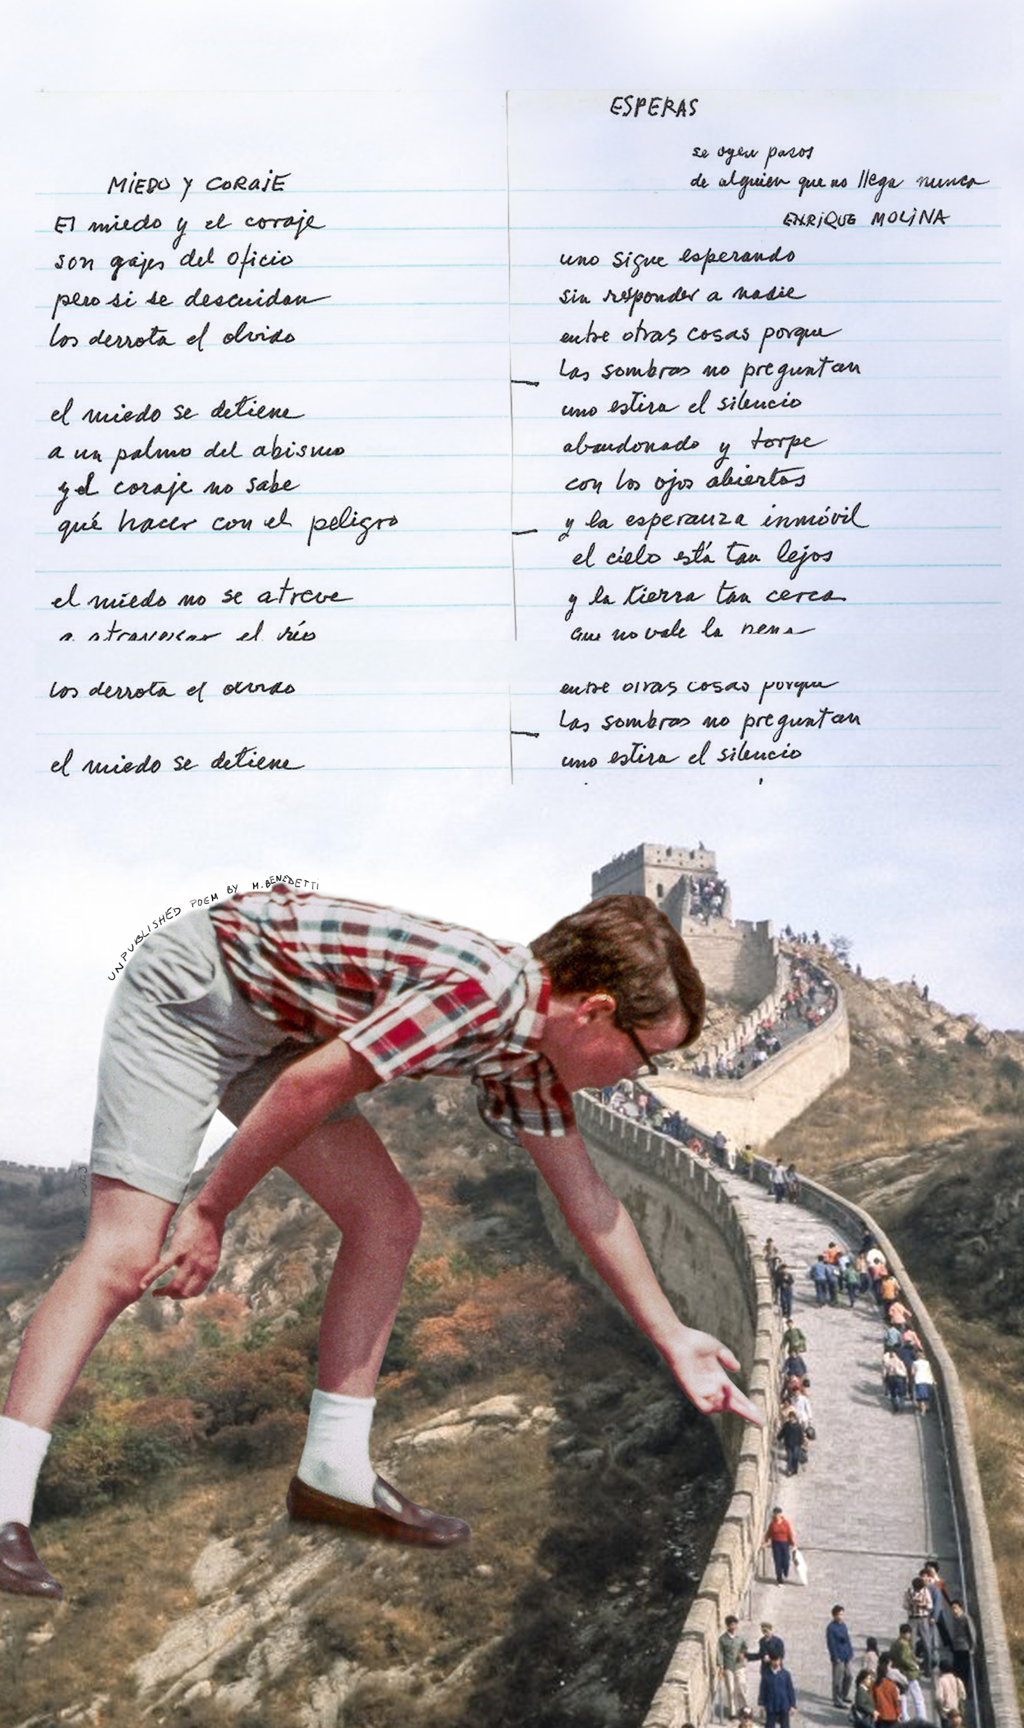 MIEDO Y CORAJE
El miedo y el coraje
son gajes del oficio
pero si se descuidan
los derrota el olvido
el miedo se detiene
a un palmo del abismo
y el coraje no sabe
qué hacer con el peligro
el miedo no se atreve
a atravesar el río
los derrota el olvido
el miedo se detiene
ESPERAS
se oyen pasos
de alguien que no llega nunca
ENRIQUE MOLINA
uno sigue esperando
sin responder a nadie
entre otras cosas porque
las sombras no preguntan
uno estira el silencio
abandonado y torpe
con los ojos abiertos
y la esperanza inmóvil
el cielo está tan lejos
y la tierra tan cerca
que no vale la pena
entre otras cosas porque
las sombras no preguntan
uno estira el silencio
UNPUBLISHED POEM BY M. BENEDETTI